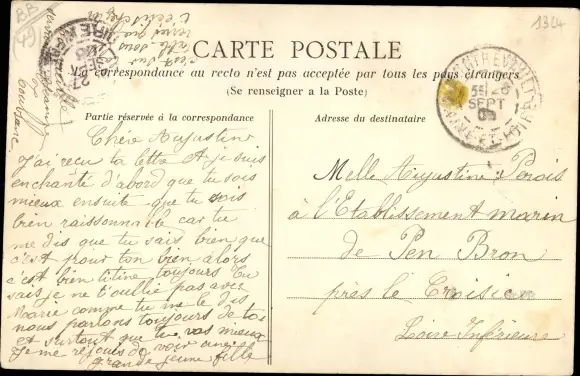 1324
CARTE POSTALE
La correspondance au recto n'est pas acceptée par tous les pays étrangers
(Se renseigner à la Poste)
Partie réservée à la correspondance
Adresse du destinataire
Chère Augustine
J'ai reçu ta lettre et je suis
enchante d'abord que tu sois
mieux ensuite que tu sois
bien raissonnable car tu
me dis que tu sais bien que
c'est pour ton bien alors
c'est bien titine toujours tu
sais je ne t'oublie pas avec
Marie comme tu me le dis
nous parlons toujours de toi
et surtout que tu vas mieux
je me réjouis de voir une
grande jeune fille
Melle Augustine Perois
à l'Etablissement marin
de Pen Bron
près le Croisic
Loire Inférieure
SEPT